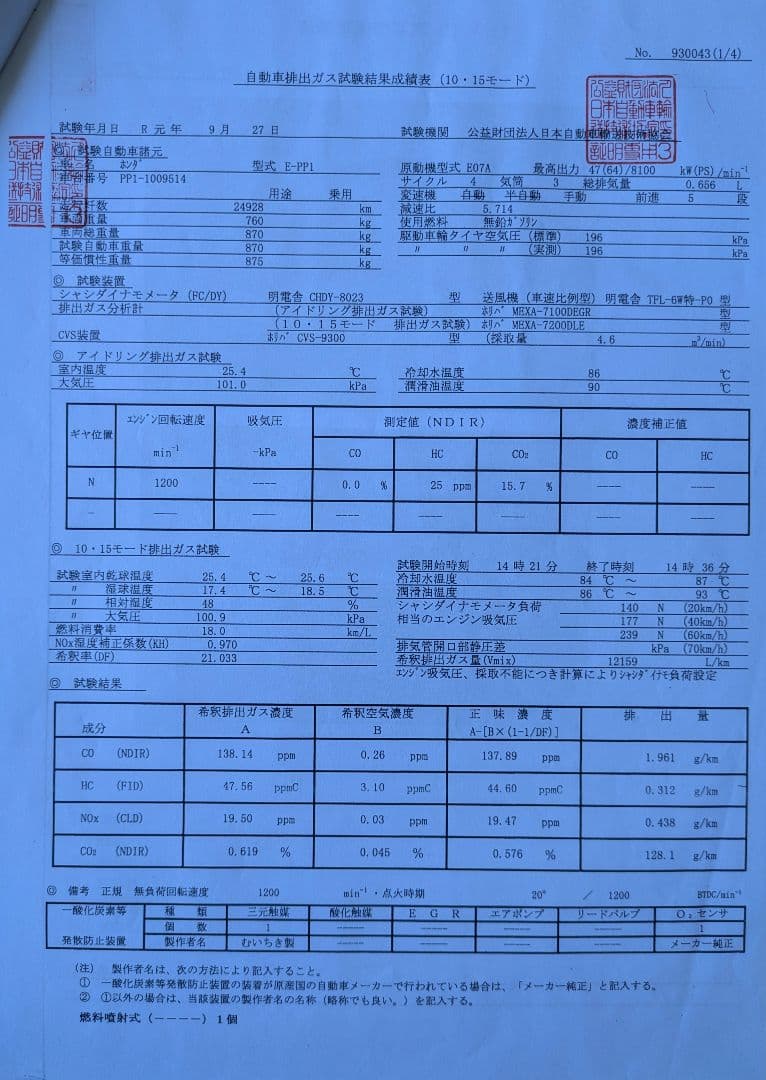 No. 930043(1/4)
自動車排出ガス試験結果成績表（10・15モード）
試験年月日 R 元 年 9 月 27 日 試験機関 公益財団法人日本自動車輸送技術協会
◎ 試験自動車諸元
車 名 ホンダ 型式 E-PP1 原動機型式 E07A 最高出力 47(64)/8100 kW(PS)/min⁻¹
車台番号 PP1-1009514 サイクル 4 気筒 3 総排気量 0.656 L
用途 乗用 変速機 自動 半自動 手動 前進 5 段
走行キロ数 24928 km 減速比 5.714
車両重量 760 kg 使用燃料 無鉛ガソリン
車両総重量 870 kg 駆動車輪タイヤ空気圧（標準） 196 kPa
試験自動車重量 870 kg 〃 〃 〃 （実測） 196 kPa
等価慣性重量 875 kg
◎ 試験装置
シャシダイナモメータ（FC/DY） 明電舎 CHDY-8023 型 送風機（車速比例型） 明電舎 TFL-6W特-PO 型
排出ガス分析計 （アイドリング排出ガス試験） ホリバ MEXA-7100DEGR 型
（10・15モード 排出ガス試験） ホリバ MEXA-7200DLE 型
CVS装置 ホリバ CVS-9300 型 （採取量 4.6 m³/min）
◎ アイドリング排出ガス試験
室内温度 25.4 ℃ 冷却水温度 86 ℃
大気圧 101.0 kPa 潤滑油温度 90 ℃
ギヤ位置 エンジン回転速度 min⁻¹ 吸気圧 -kPa 測定値（NDIR） 濃度補正値
CO HC CO₂ CO HC
N 1200 ---- 0.0 % 25 ppm 15.7 % ---- ----
- ---- ---- ---- ---- ---- ---- ----
◎ 10・15モード排出ガス試験
試験開始時刻 14 時 21 分 終了時刻 14 時 36 分
試験室内乾球温度 25.4 ℃ ～ 25.6 ℃ 冷却水温度 84 ℃ ～ 87 ℃
〃 湿球温度 17.4 ℃ ～ 18.5 ℃ 潤滑油温度 86 ℃ ～ 93 ℃
〃 相対湿度 48 % シャシダイナモメータ負荷 140 N (20km/h)
〃 大気圧 100.9 kPa 相当のエンジン吸気圧 177 N (40km/h)
燃料消費率 18.0 km/L 239 N (60km/h)
NOx湿度補正係数(KH) 0.970 排気管開口部静圧差 kPa (70km/h)
希釈率(DF) 21.033 希釈排出ガス量(Vmix) 12159 L/km
エンジン吸気圧、採取不能につき計算によりシャシダイナモ負荷設定
◎ 試験結果
成分 希釈排出ガス濃度 A 希釈空気濃度 B 正 味 濃 度 A-[B×(1-1/DF)] 排 出 量
CO (NDIR) 138.14 ppm 0.26 ppm 137.89 ppm 1.961 g/km
HC (FID) 47.56 ppmC 3.10 ppmC 44.60 ppmC 0.312 g/km
NOx (CLD) 19.50 ppm 0.03 ppm 19.47 ppm 0.438 g/km
CO₂ (NDIR) 0.619 % 0.045 % 0.576 % 128.1 g/km
◎ 備考 正規 無負荷回転速度 1200 min⁻¹ ・点火時期 20° / 1200 BTDC/min⁻¹
一酸化炭素等 種 類 三元触媒 酸化触媒 E G R エアポンプ リードバルブ O₂センサ
個 数 1 ---- ---- ---- ---- 1
発散防止装置 製作者名 むいちき製 ---- ---- ---- ---- メーカー純正
（注） 製作者名は、次の方法により記入すること。
① 一酸化炭素等発散防止装置の装着が原産国の自動車メーカーで行われている場合は、「メーカー純正」と記入する。
② ①以外の場合は、当該装置の製作者名の名称（略称でも良い。）を記入する。
燃料噴射式（----）1個